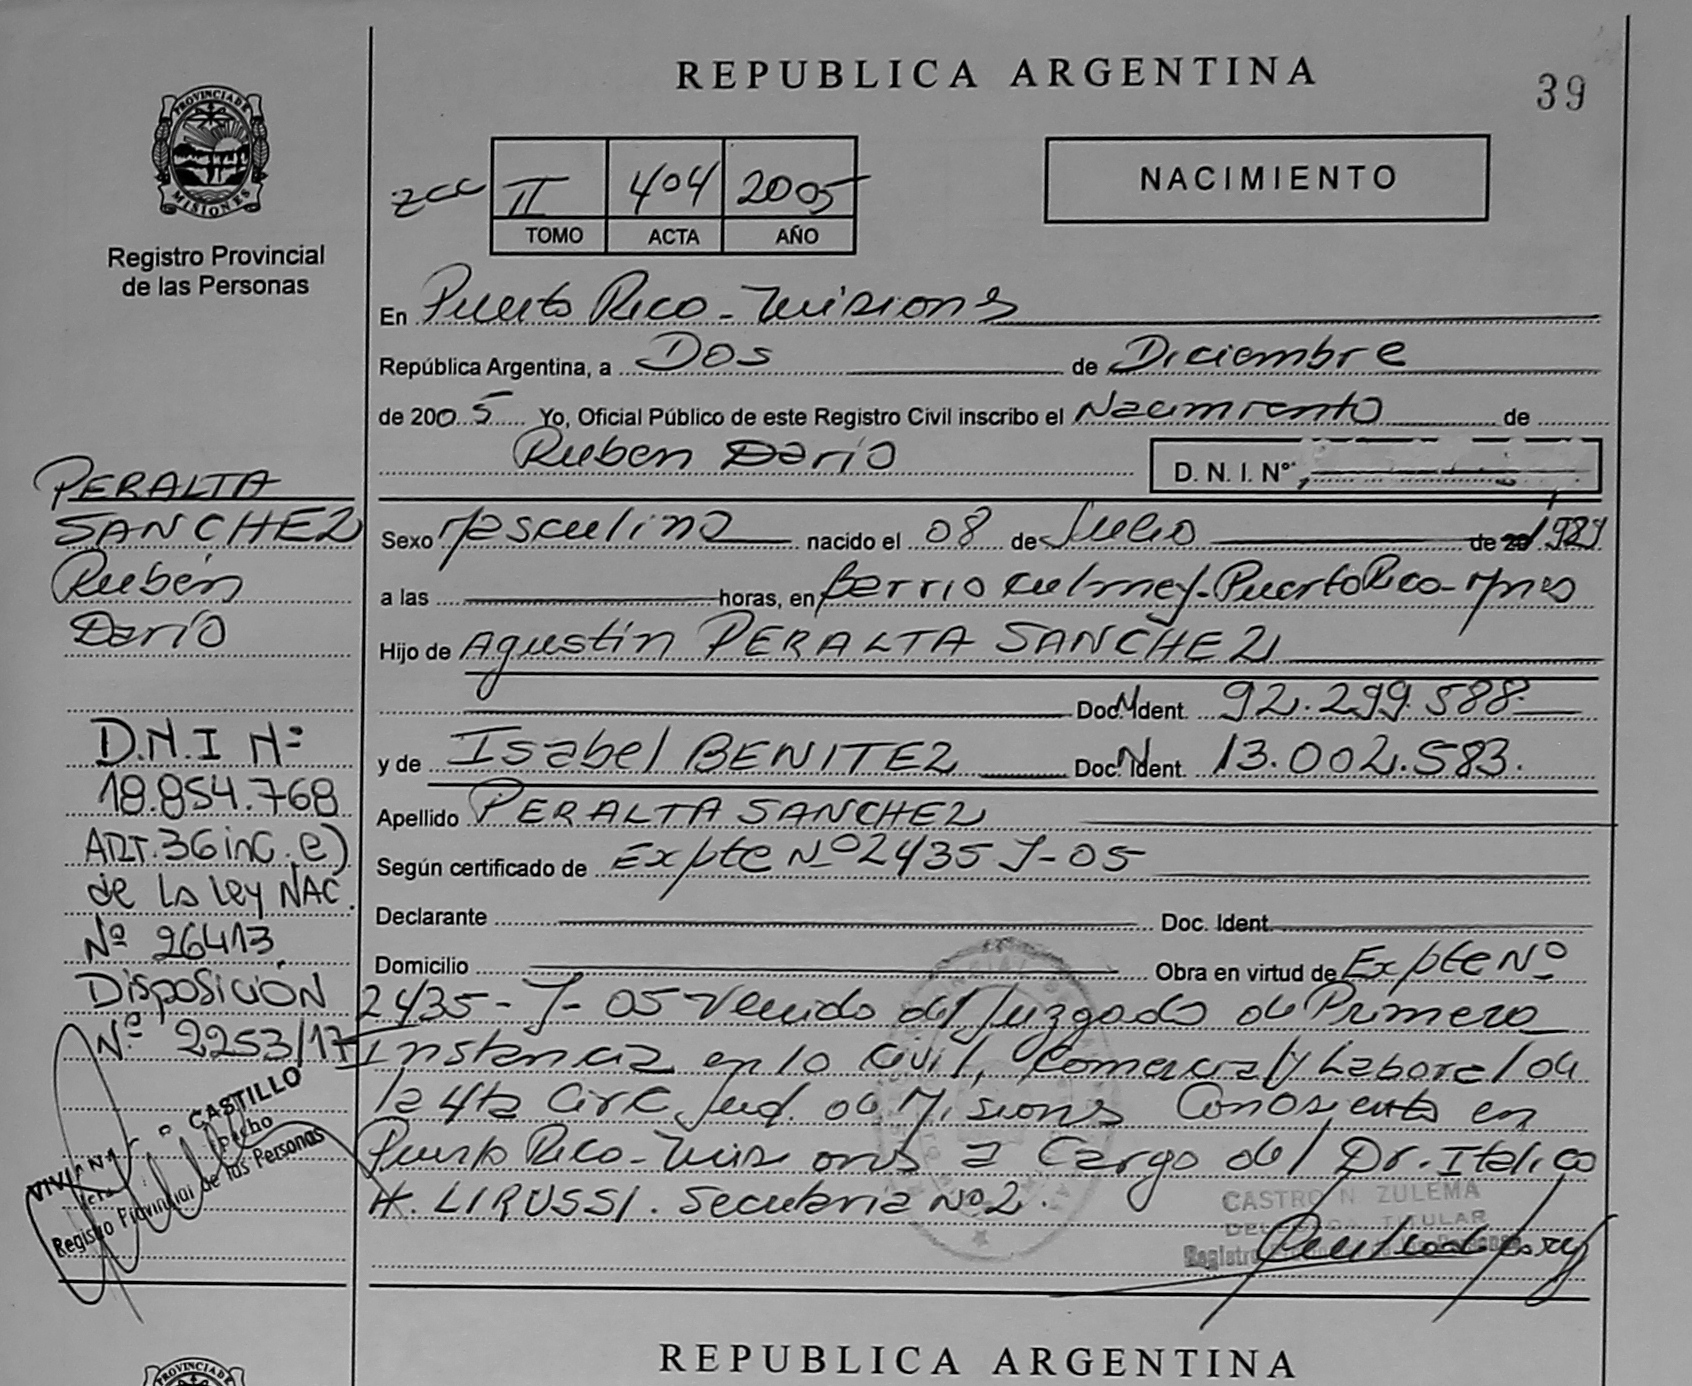 REPUBLICA ARGENTINA
39
PROVINCIA DE
MISIONES
Registro Provincial
de las Personas
zcc II 404 2005
TOMO ACTA AÑO
NACIMIENTO
En Puerto Rico - Misiones
República Argentina, a Dos de Diciembre
de 2005 Yo, Oficial Público de este Registro Civil inscribo el Nacimiento de
Ruben Darío
D. N. I. Nº
Sexo Masculino nacido el 08 de Julio de 20
a las horas, en Barrio Culmey - Puerto Rico - Mnes
Hijo de Agustín PERALTA SANCHEZ
Doc. Ident. 92.299.588.
y de Isabel BENITEZ Doc. Ident. 13.002.583.
Apellido PERALTA SANCHEZ
Según certificado de Expte Nº 2435 J-05
Declarante Doc. Ident.
Domicilio Obra en virtud de Expte Nº
2435 - J - 05 Venido del Juzgado de Primera
Instancia en lo Civil, Comercial y Laboral de
la 4ta Circ. Jud. de Misiones Con asiento en
Puerto Rico - Misiones a Cargo del Dr. Italico
H. LIRUSSI. Secretaria Nº 2.
PERALTA
SANCHEZ
Rubén
Darío
D.N.I Nº
18.854.768
ART. 36 inc. e)
de La Ley NAC.
Nº 26413.
Disposición
Nº 2253/17
VIVIANA CASTILLO
Registro Provincial de las Personas
CASTRO N. ZULEMA
TITULAR
Registro
REPUBLICA ARGENTINA
PROVINCIA DE